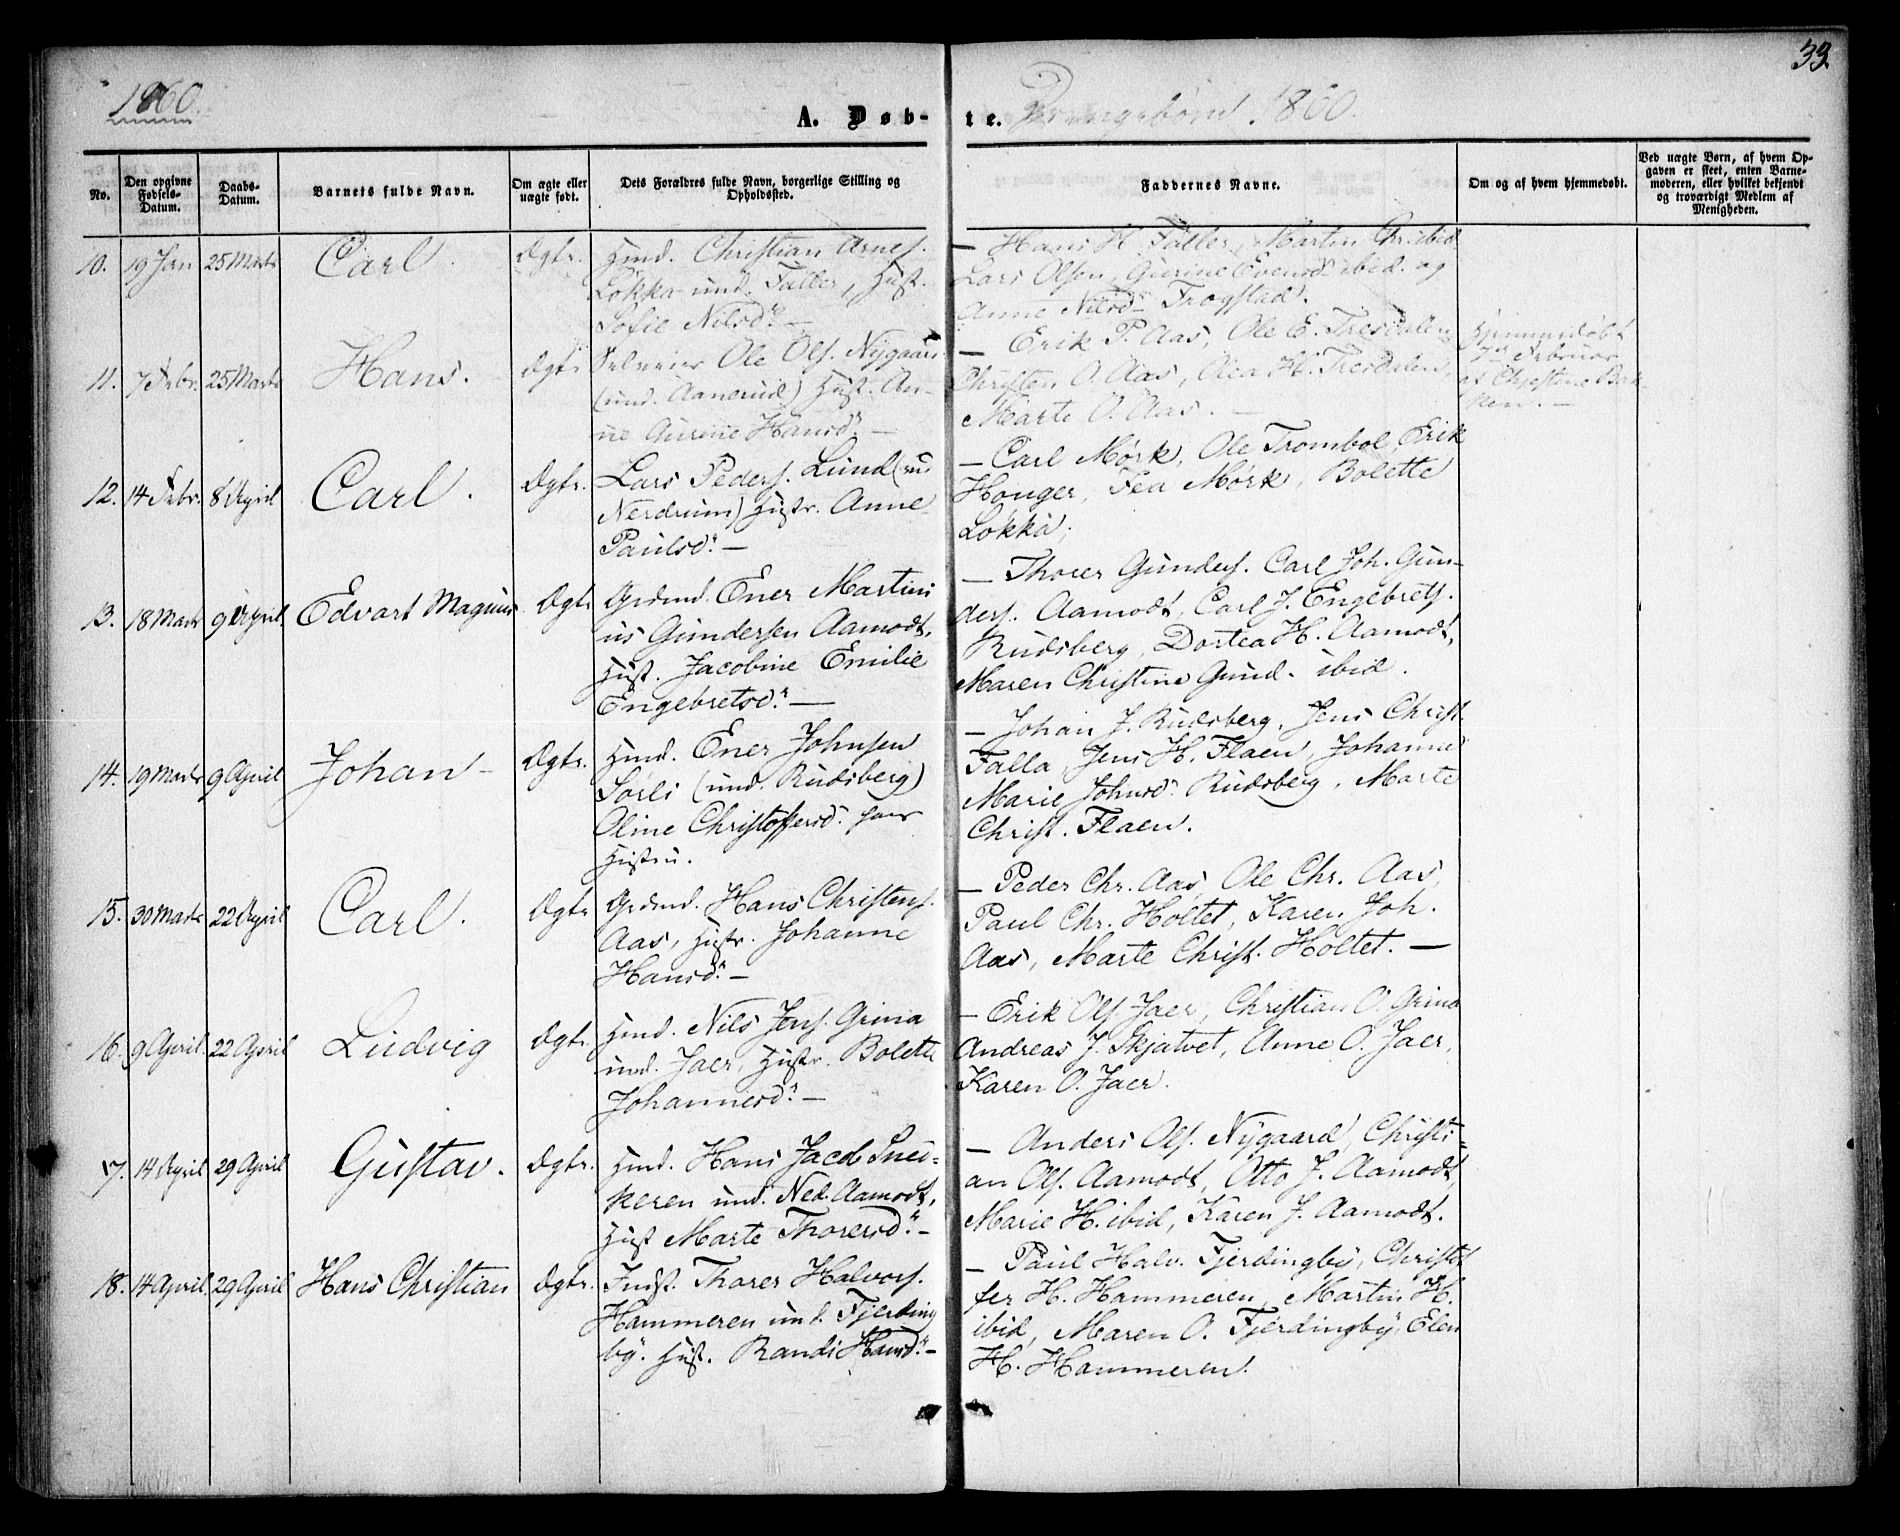 33.
1860.
A. Døb-te. Drengebørn 1860.
No.
Den opgivne Fødsels-Datum.
Daabs-Datum.
Barnets fulde Navn.
Om ægte eller uægte født.
Dets Forældres fulde Navn, borgerlige Stilling og Opholdssted.
Faddernes Navne.
Om og af hvem hjemmedøbt.
Ved uægte Børn, af hvem Op-
gaven er skeet, enten Barne-
moderen, eller hvilket bekjendt
og troværdigt Medlem af
Menigheden.
10. 19 Jan 25 Marts Carl. Ægte.
Husmd. Christian Arnes.
Løkka und. Faller, Hust.
Sofie Nilsd. —
— Hans H. Faller, Martin Chr. ibid
Lars Olsen, Gurine Evensd. ibid. og
Anne Nilsd. Trogstad.
11. 7 Febr. 25 Marts Hans. Ægte
Selveier Ole Ols. Nygaard
(und. Aanerud) Hust. An-
ne Gurine Hansd. —
— Erik P. Aas, Ole E. Tresdalen,
Christen O. Aas, Olea H. Tresdalen,
Marte O. Aas. —
Hjemmedøbt
7de Februar
af Chrestine Bak-
ken. —
12. 14 Febr. 8 April Carl. Ægte.
Lars Peders. Lund (und
Nerdrum) Hustr. Anne
Paulsd. —
— Carl Mørk, Ole Trombol, Erik
Honger, Fea Mørk, Bolette
Løkka,
13. 18 Marts 9 April Edvart Magnus Ægte
Grdmd. Ener Martini
us Gundersen Aamodt,
Hust. Jacobine Emilie
Engebretsd. —
— Thorer Gunders. Carl Joh. Gun-
ders. Aamodt, Carl J. Engebrets.
Rudsberg, Dortea H. Aamodt,
Maren Christine Gund. ibid.
14. 19 Marts 9 April Johan — Ægte.
Husmd. Ener Johnsen
Sørli (und. Rudsberg)
Oline Christoffersd. hans
Hustru.
— Johan J. Rudsberg, Jens Christ.
Falla, Jens H. Flaen, Johanne
Marie Johnsd. Rudsberg, Marte
Christ. Flaen.
15. 30 Marts 22 April Carl. Ægte
Grdmd. Hans Christens.
Aas, Hustr. Johanne
Hansd. —
— Peder Chr. Aas, Ole Chr. Aas,
Paul Chr. Holtet, Karen Joh.
Aas, Marte Christ. Holtet. —
16. 9 April. 22 April Ludvig Ægte.
Husmd. Nils Jens. Grina
und. Jaer, Hustr. Bolette
Johannesd. —
— Erik Ols. Jaer, Christian O. Grina
Andreas J. Skjatvet, Anne O. Jaer,
Karen O. Jaer.
17. 14 April 29 April Gustav. Ægte.
Husmd. Hans Jacob Snei-
keren und. Ned. Aamodt,
Hust Marte Thoresd. —
— Anders Ols. Nygaard, Christi-
an Ols. Aamodt, Otto J. Aamodt,
Marie H. ibid, Karen J. Aamodt.
18. 14 April. 29 April Hans Christian Ægte.
Indst. Thorer Halvors.
Hammeren und. Fjerding
by. Hust. Randi Hansd. —
— Paul Halv. Fjerdingby, Christof
fer H. Hammeren, Martin H.
ibid, Maren O. Fjerdingby, Elen
H. Hammeren.